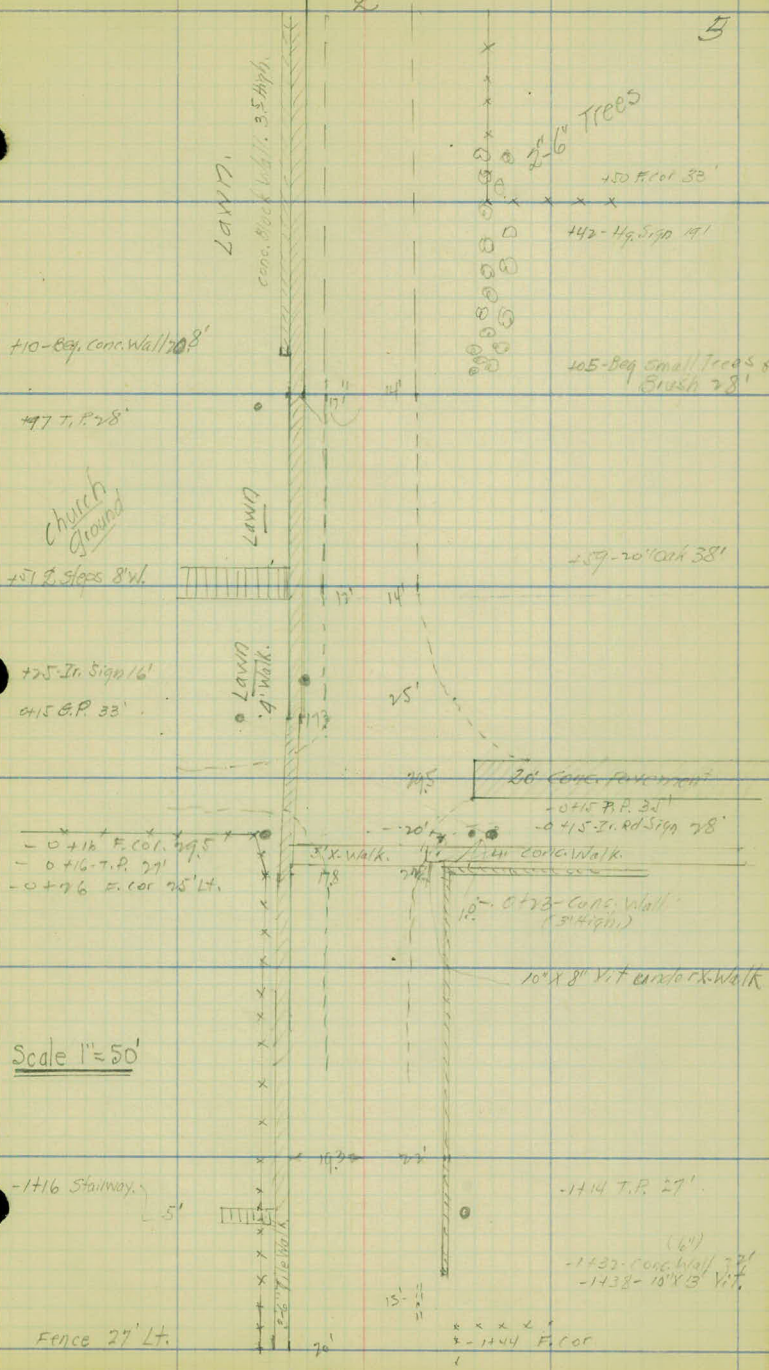 2
5
Lawn.
conc. Block Wall. 3.5 High.
2"-6" Trees
+50 F.cor 33'
+42-Hg. Sign 19'
+10-Beg. Conc. Wall 20.8'
+05-Beg small Trees &
Brush 28'
14'
+97 T.P. 28'
Church
Ground
Lawn
+59-20" Oak 38'
+51 ⅊ Steps 8'W.
12' 14'
+25-Ir. Sign 16'
0+15 G.P. 33'
Lawn
4' Walk.
25'
17.3
29.5
20' Conc. Pavement
-0+15 P.P. 35'
20'
-0+15-Ir. Rd Sign 28'
- 0+16 F.cor. 29.5
- 0+16-T.P. 27'
- 0+26 F.cor 25' Lt.
3' X-Walk.
4' Conc. Walk.
17.8
- 0+23-Conc. Wall
(3' High.)
10" X 8' Vit under X-Walk
Scale 1"=50'
19.3 22'
-1+16 Stairway.
5'
-1+14 T.P. 27'
(6")
-1+32-Conc. Wall 22'
-1+38-10" X 13' Vit.
Tile Walk
13'
Fence 27' Lt.
20'
-1+44 F.cor